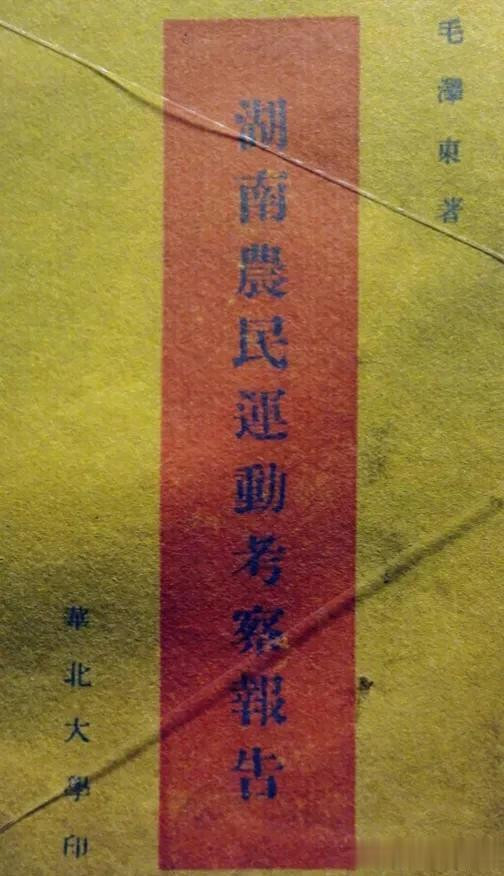 毛澤東著
湖南農民運動考察報告
華北大學印